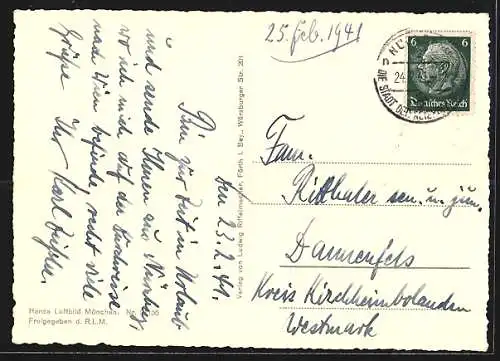 25. Feb. 1941
den 23.2.41.
Bin zur Zeit in Urlaub
und sende Ihnen aus Nürnberg,
wo ich mich auf der Durchreise
nach Wien befinde, recht viele
Grüße
Ihr Karl
Hansa Luftbild München, Nr.
Freigegeben d. R.L.M.
Verlag von Ludwig Riffelmacher, Fürth i. Bay., Würzburger Str. 201
NÜ
24.
DIE STADT DER REI
6 6
Deutsches Reich
Fam.
Ritthaler sen. u. jun.
Dannenfels
Kreis Kirchheimbolanden
Westmark